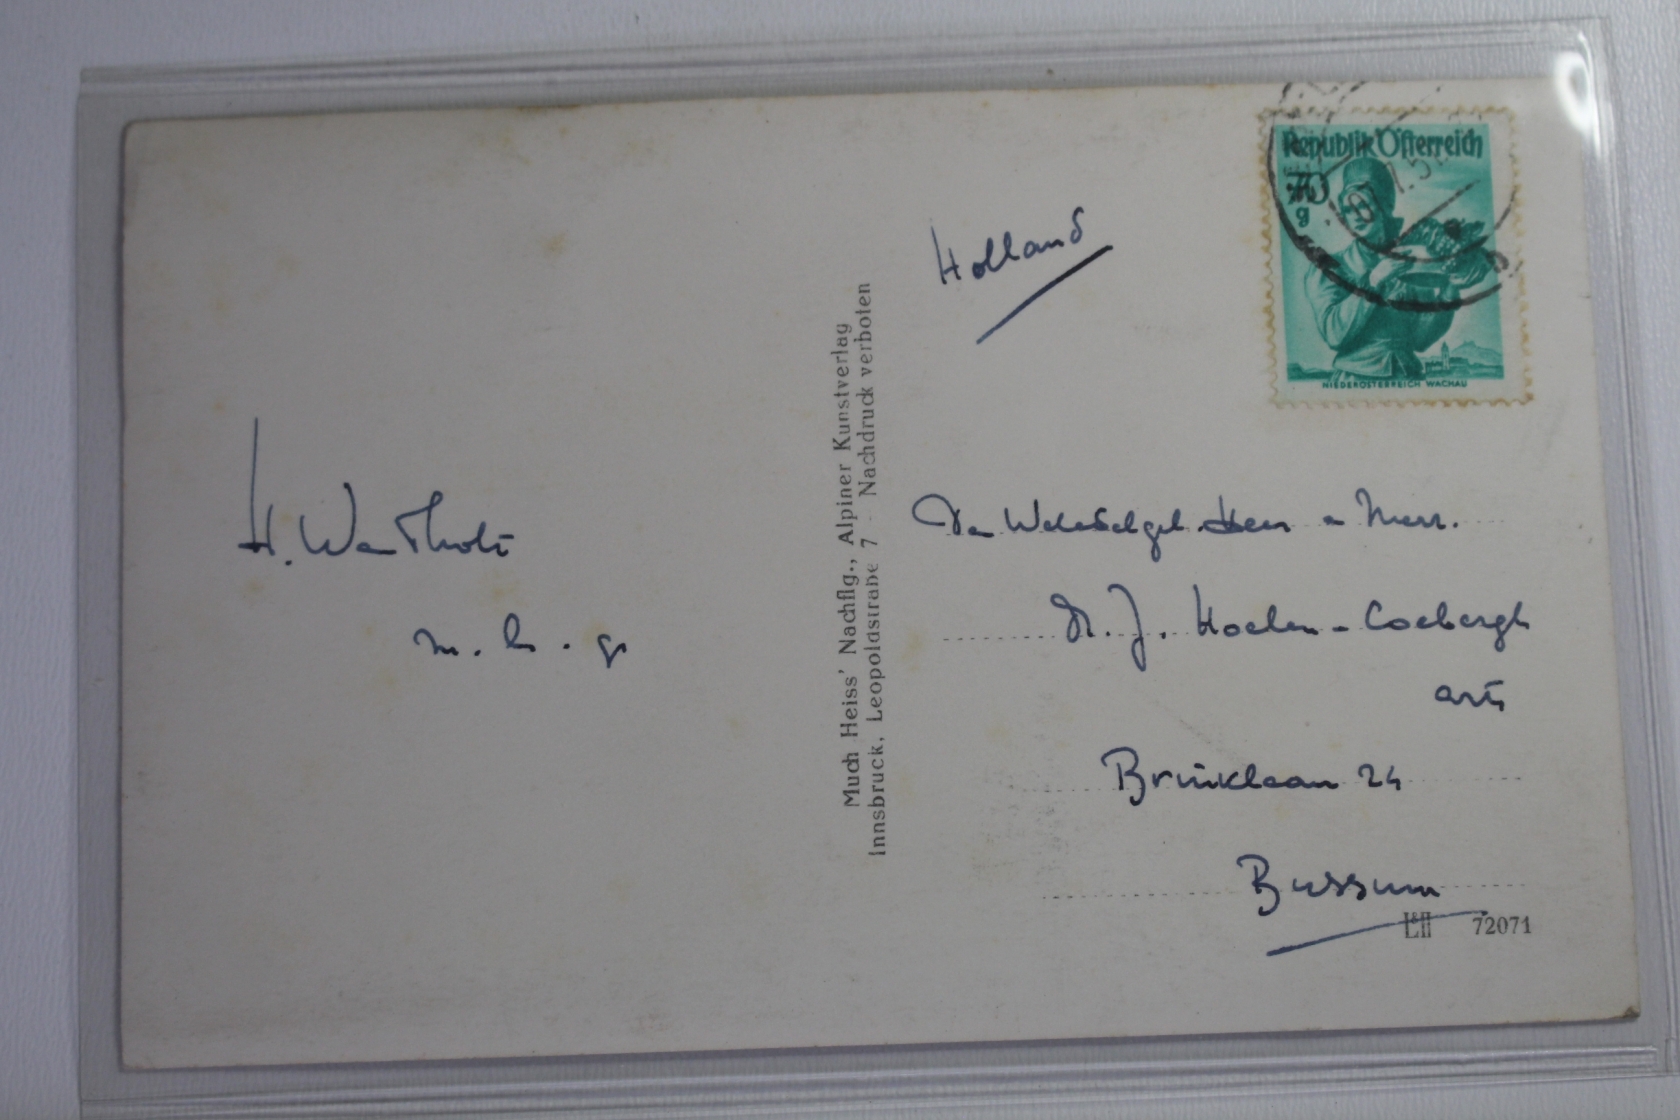 H. Wartholt
m. h. g.
Much Heiss' Nachflg., Alpiner Kunstverlag
Innsbruck, Leopoldstraße 7 - Nachdruck verboten
Holland
Republik Österreich
70
g
NIEDERÖSTERREICH WACHAU
Den Weledelgel. Heer en Mevr.
J. Hoelen - Coebergh
arts
Brinklaan 24
Bussum
72071